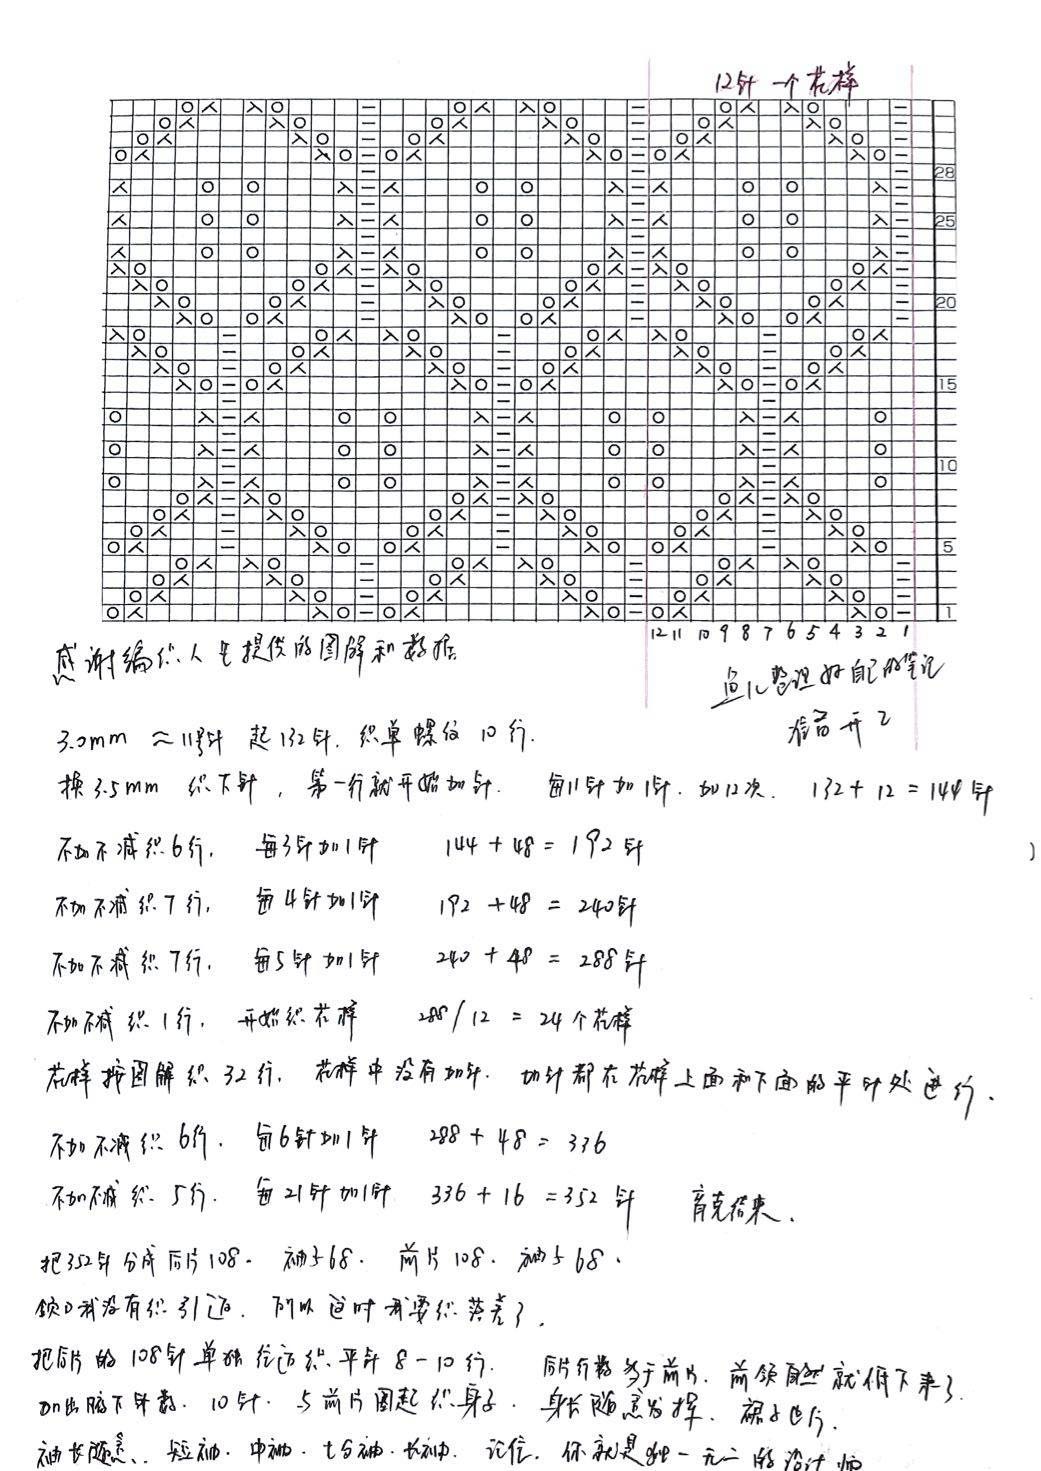 12针一个花样
28
25
20
15
10
5
1
12 11 10 9 8 7 6 5 4 3 2 1
感谢编织人生提供的图解和数据
整理好自己的笔记
准备开工
3.0mm ≈11号针 起132针. 织单螺纹10行.
换3.5mm 织下针, 第一行就开始加针. 每11针加1针. 加12次. 132+12=144针
不加不减织6行, 每3针加1针 144+48=192针
不加不减织7行, 每4针加1针 192+48=240针
不加不减织7行, 每5针加1针 240+48=288针
不加不减织1行, 开始织花样 288/12=24个花样
花样按图解织32行. 花样中没有加针. 加针都在花样上面和下面的平针处进行.
不加不减织6行. 每6针加1针 288+48=336
不加不减织5行. 每21针加1针 336+16=352针 育克结束.
把352针分成后片108. 袖子68. 前片108. 袖子68.
领口我没有织引返. 所以这时我要织落差了.
把后片的108针单独往返织平针8-10行. 后片行数多于前片. 前领自然就低下来了.
加出腋下针数. 10针. 与前片圈起织身子. 身长随意发挥. 裙子也行.
袖长随意. 短袖. 中袖. 七分袖. 长袖. 记住. 你就是独一无二的设计师